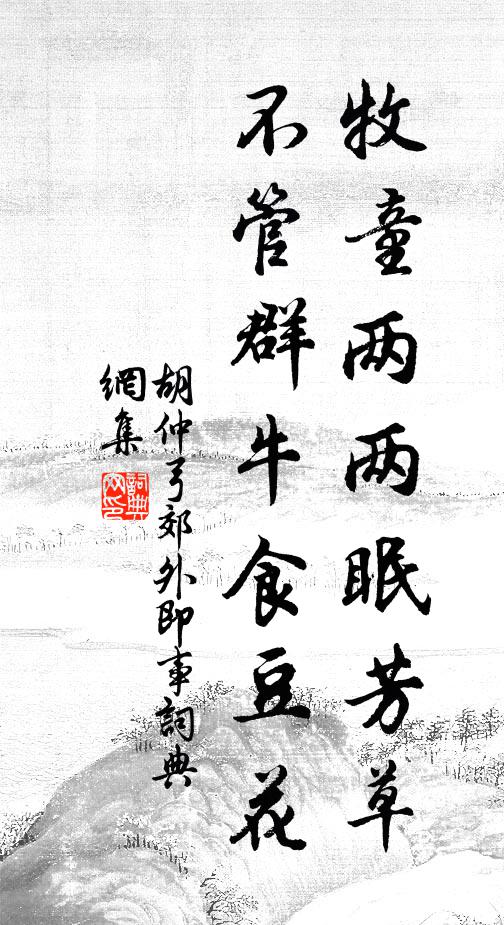 牧童两两眠芳草
不管群牛食豆花
胡仲弓郊外即事詞典
網集
詞典
网印